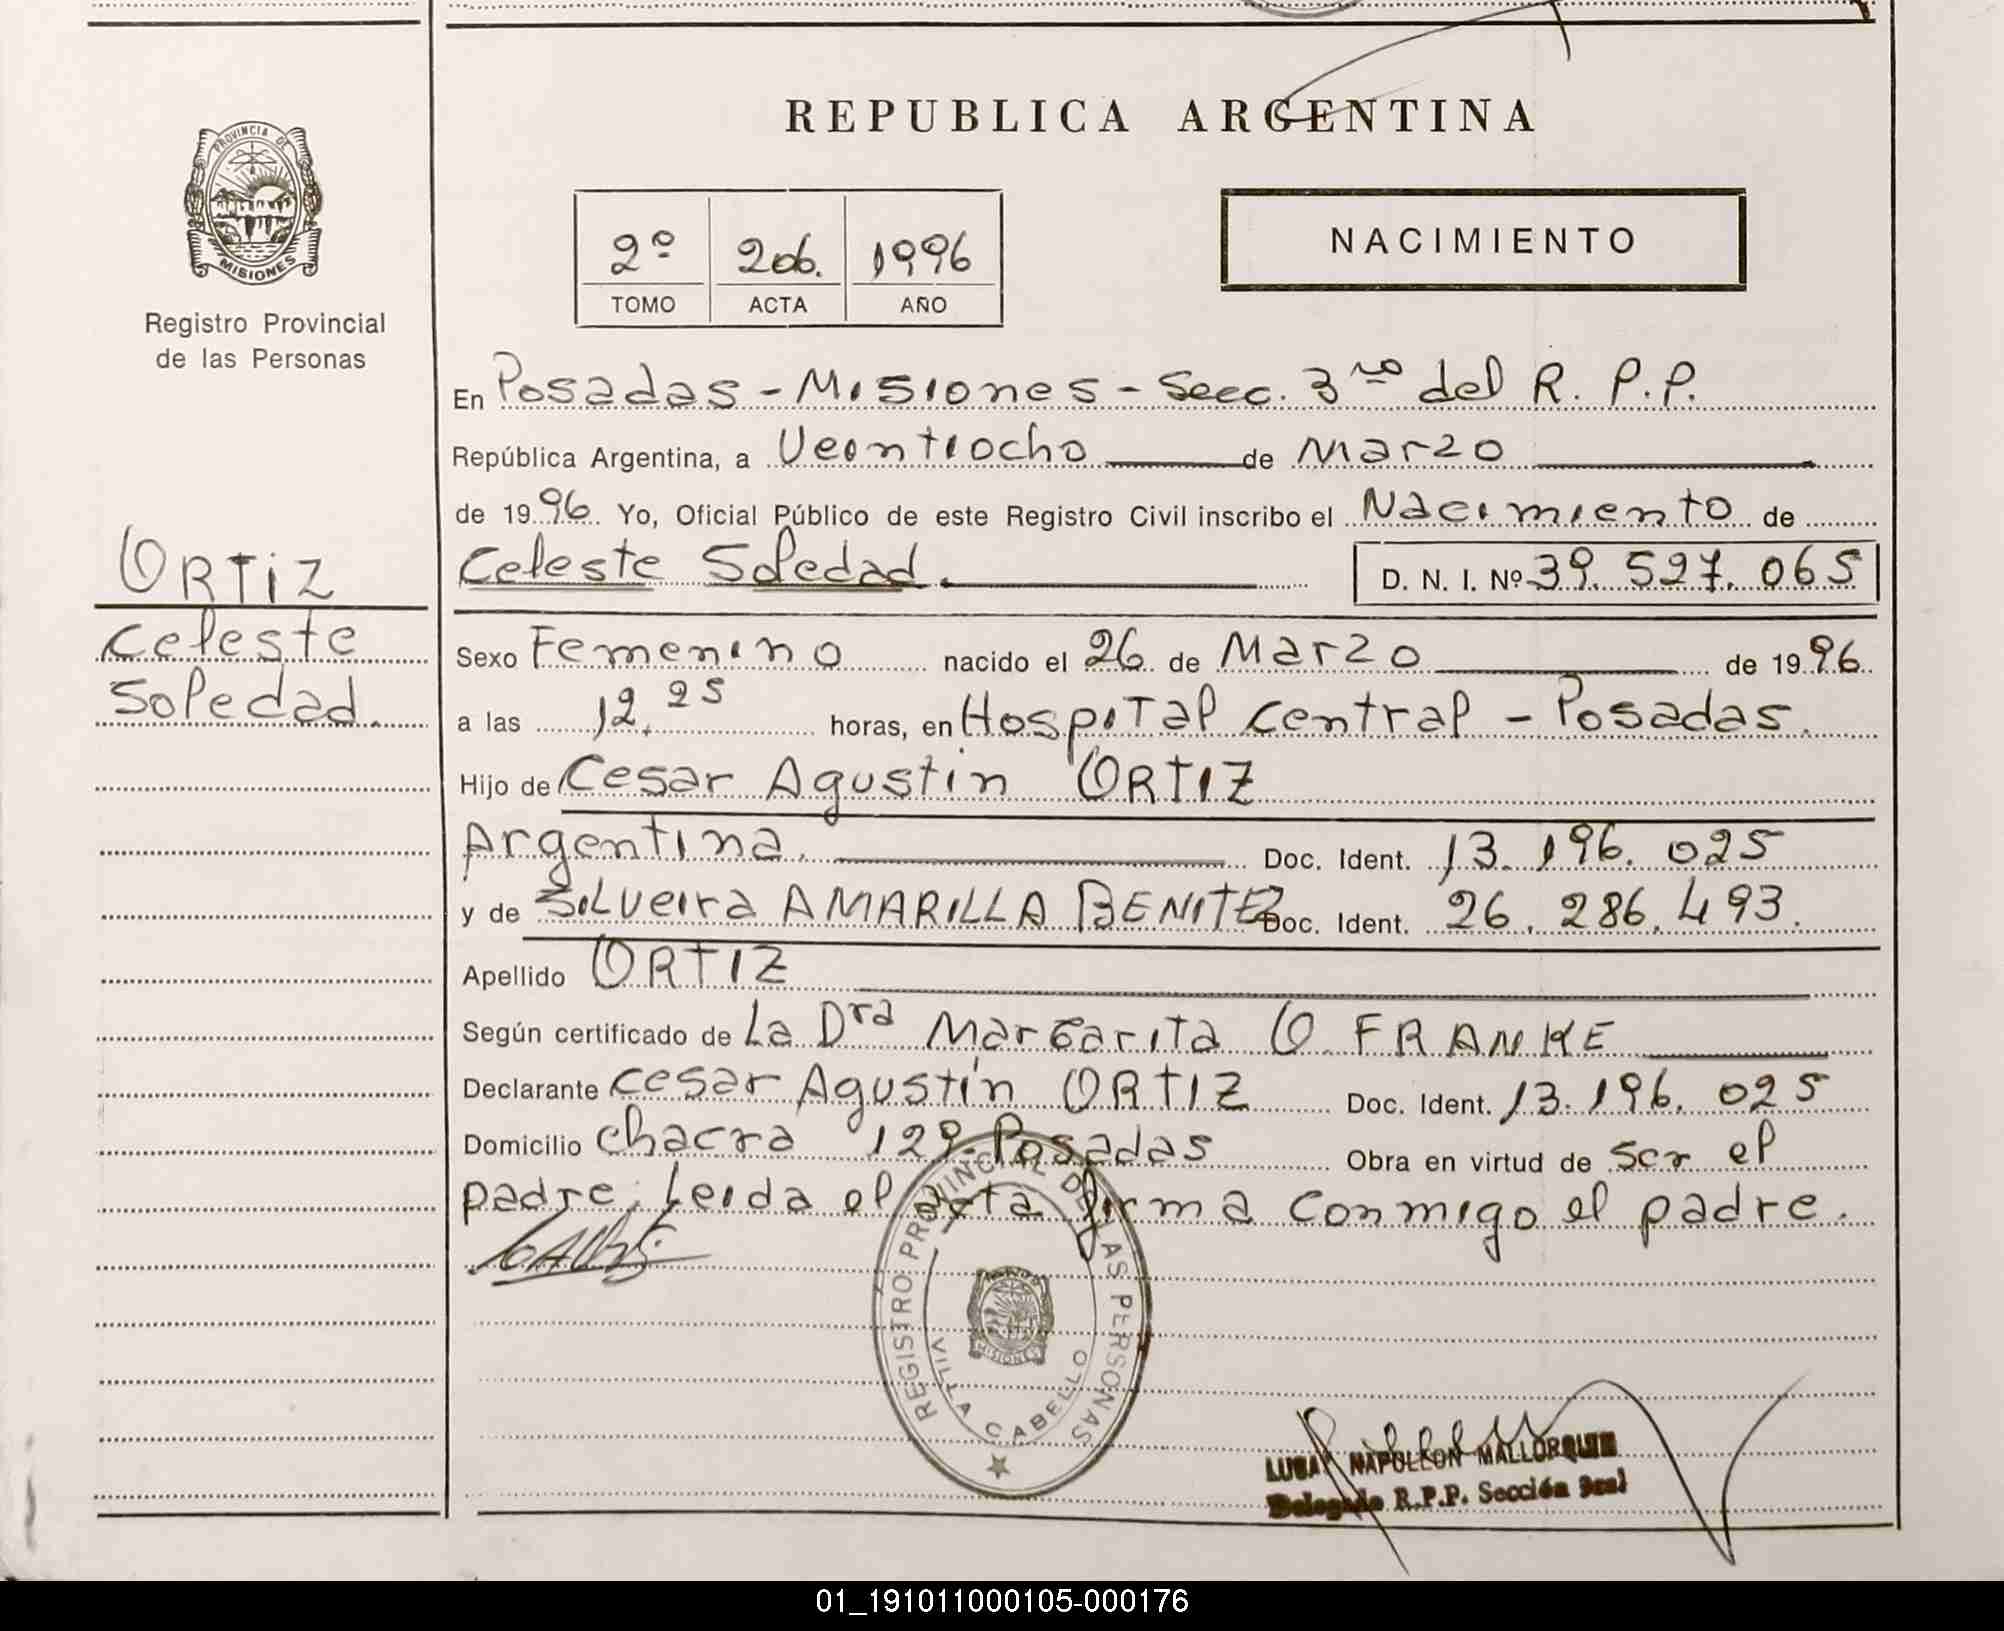 REPUBLICA ARGENTINA
PROVINCIA DE
MISIONES
Registro Provincial
de las Personas
2º 206. 1996
TOMO ACTA AÑO
NACIMIENTO
En Posadas - Misiones - Secc. 3ra del R. P.P.
República Argentina, a Veintiocho de Marzo
de 1996 Yo, Oficial Público de este Registro Civil inscribo el Nacimiento de
Celeste Soledad. D. N. I. Nº 39.527.065
ORTIZ
Celeste
Soledad.
Sexo Femenino nacido el 26 de Marzo de 1996
a las 12.25 horas, en Hospital Central - Posadas.
Hijo de Cesar Agustin ORTIZ
Argentina. Doc. Ident. 13.196.025
y de Silveira AMARILLA BENITEZ Doc. Ident. 26.286.493.
Apellido ORTIZ
Según certificado de La Dra Margarita O. FRANKE
Declarante Cesar Agustín ORTIZ Doc. Ident. 13.196.025
Domicilio Chacra 129. Posadas Obra en virtud de ser el
padre. Leida el acta firma conmigo el padre.
REGISTRO PROVINCIAL DE LAS PERSONAS
MISIONES
VILLA CABELLO
NAPOLEON MALLORQUIN
Delegado R.P.P. Sección 3ra
01_191011000105-000176